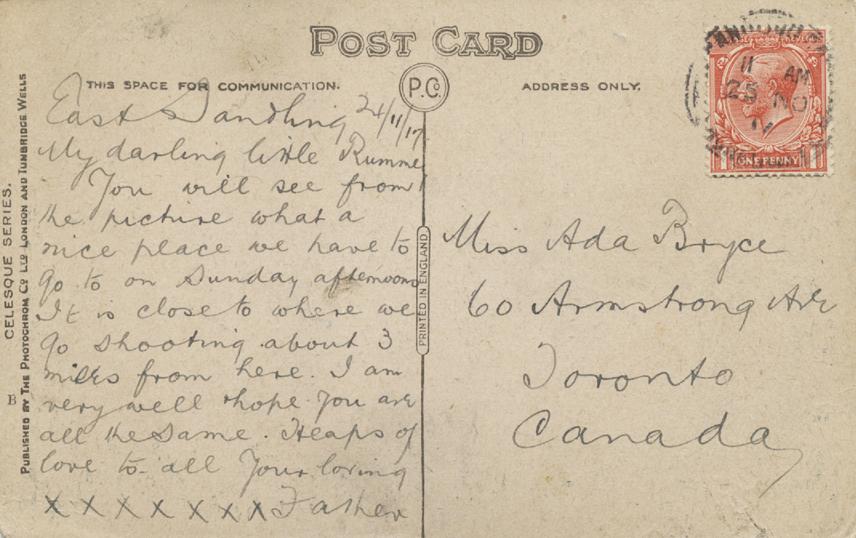 POST CARD
THIS SPACE FOR COMMUNICATION.
P.Co
ADDRESS ONLY.
East Sandling 24/11/17
My darling little Rumme
You will see from
the picture what a
nice place we have to
go to on Sunday afternoons
It is close to where we
go shooting about 3
miles from here. I am
very well & hope you are
all the same. Heaps of
love to all Your loving
x x x x x x x Father
PRINTED IN ENGLAND
Miss Ada Bryce
60 Armstrong Ave
Toronto
Canada
11 AM
25 NO
17
ONE PENNY
CELESQUE SERIES.
PUBLISHED BY THE PHOTOCHROM Co LTD LONDON AND TUNBRIDGE WELLS
B